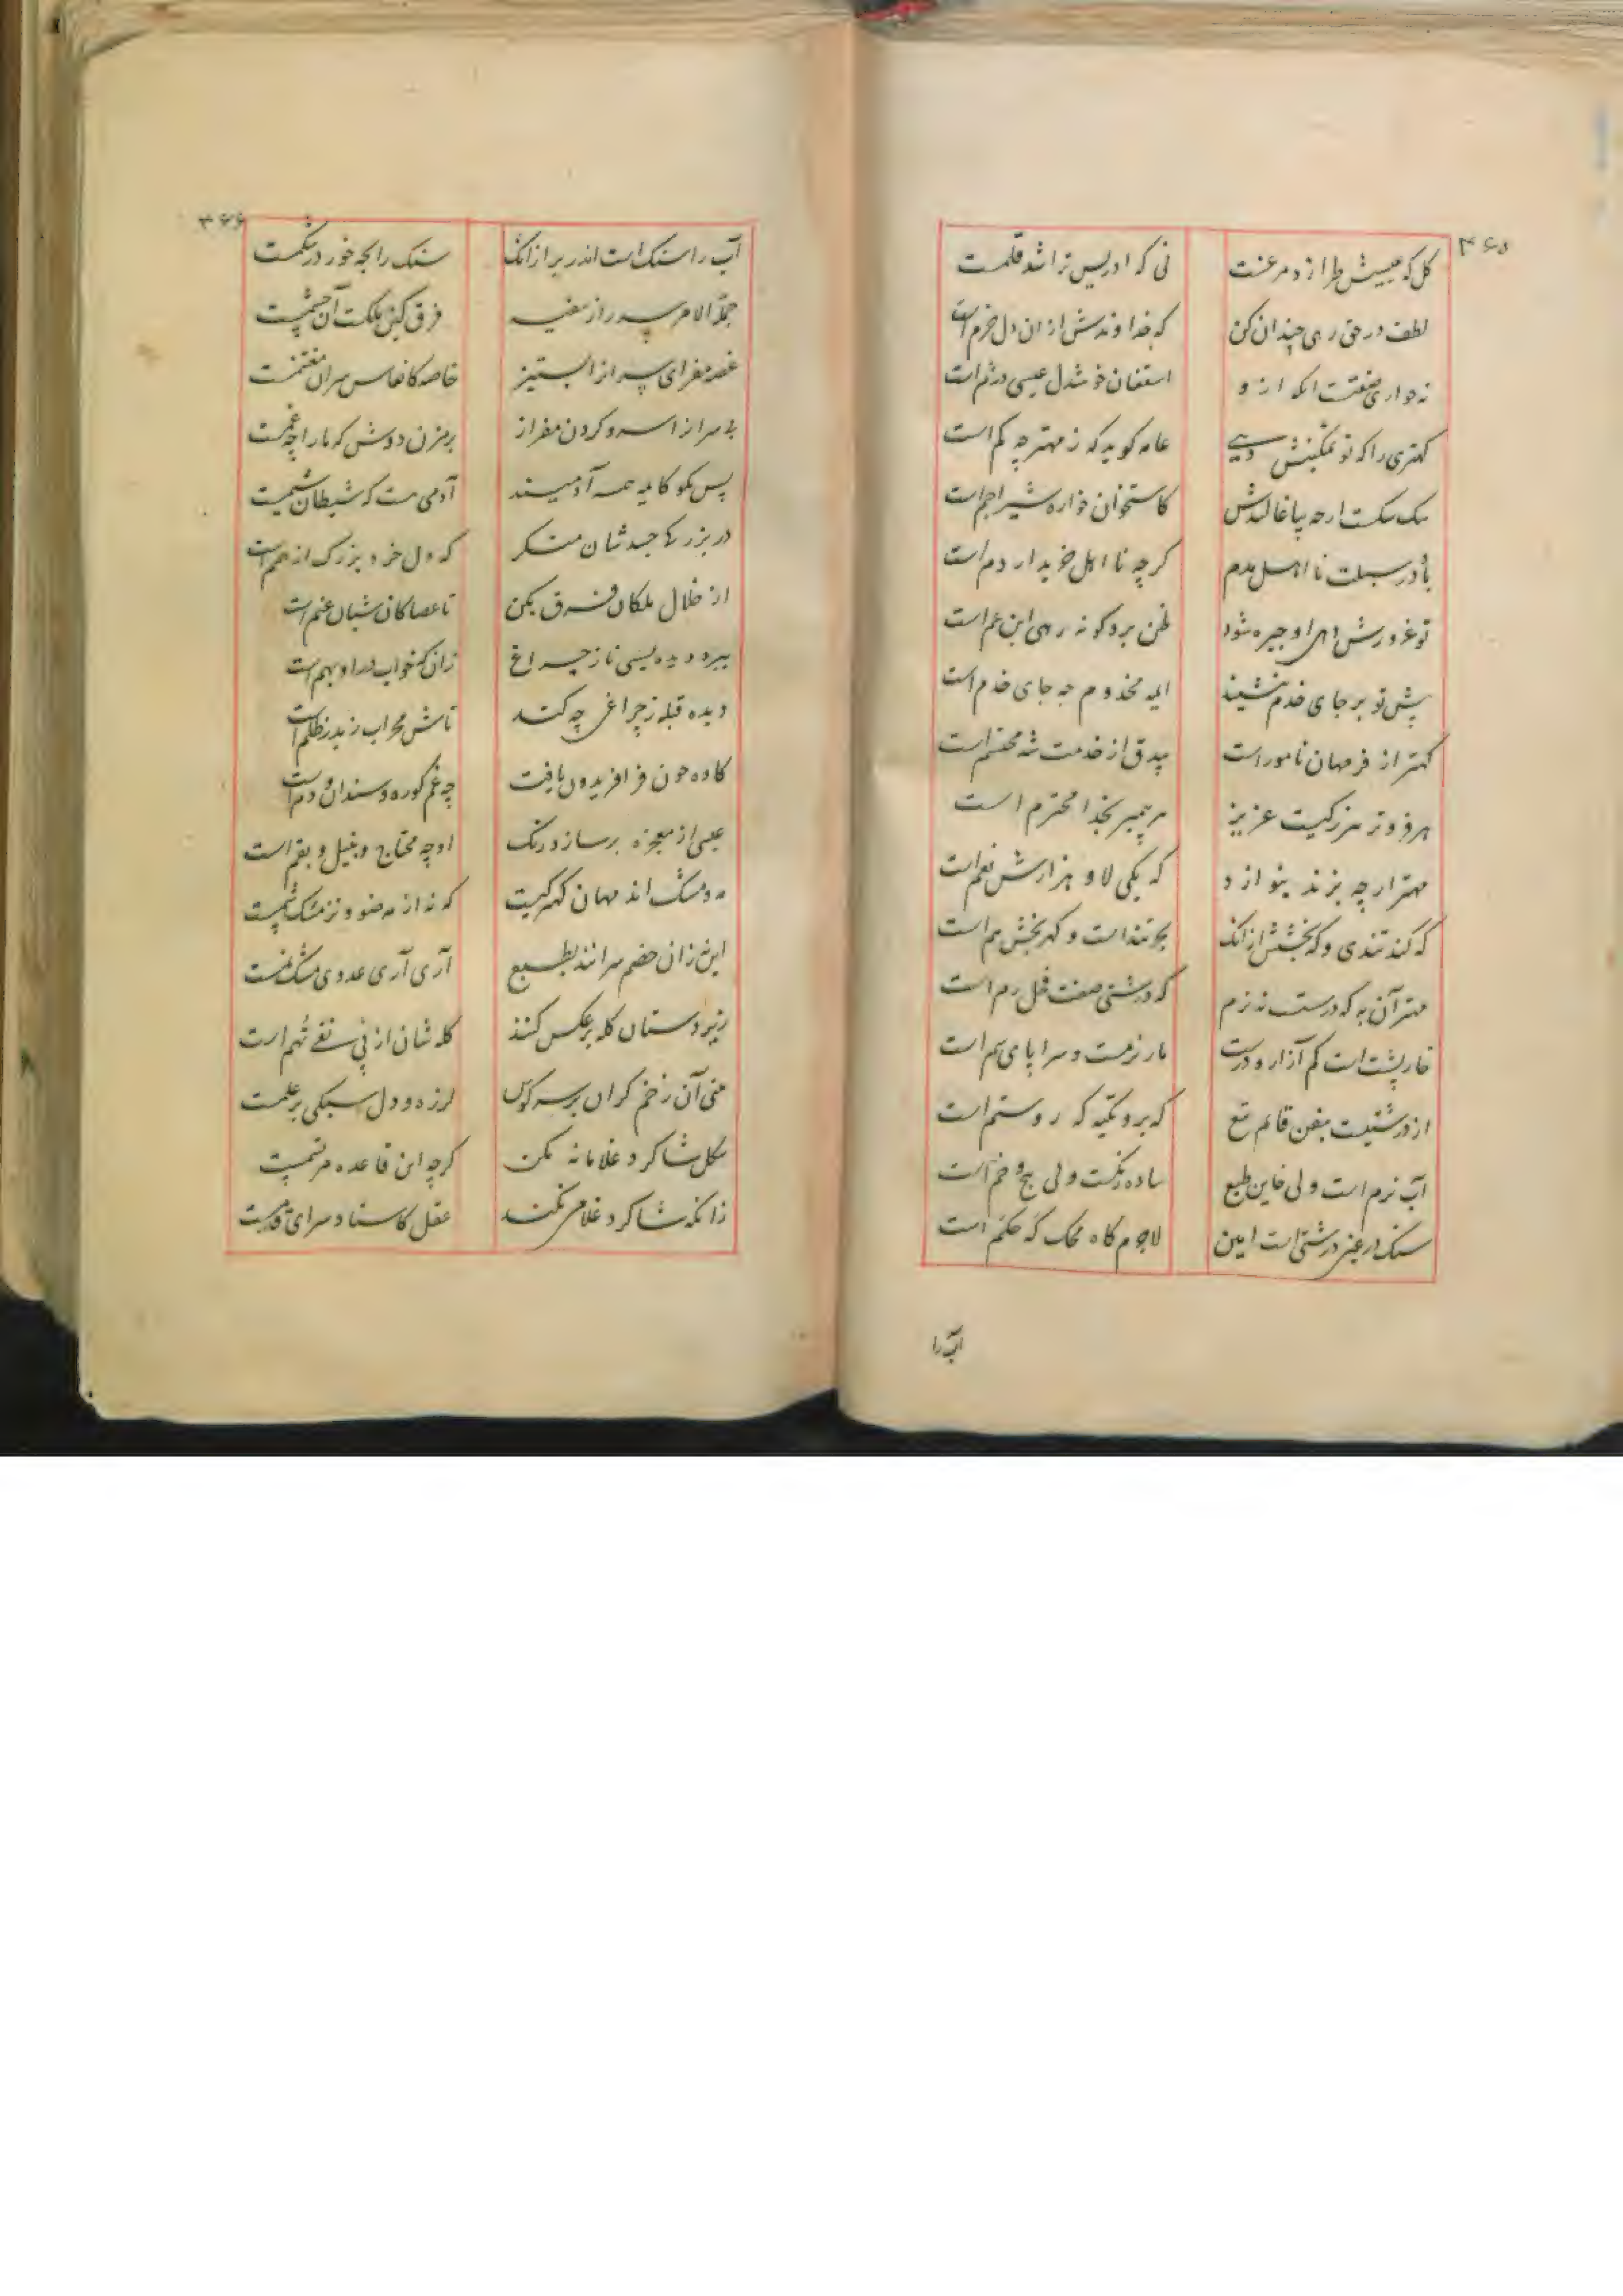 ۳۶۵
گل که عیسیش طرازد مرغست نی که ادریس تراشد قلمست
لطف در حق رهی چندان کن که خداوندش از ان دل خرم است
نه حواری صفتست انکه ازو اسقفان خوشدل عیسی دژم است
کهتری را که تو تمکینش دهی عامه کوید که ز مهتر چه کم است
سک سکست ارچه بیاغالندش کاستخوان خواره شیر اجم است
باد در سبلت نا اهل مدم کرچه نا اهل خریدار دم است
تو غرورش دهی او چیره شود ظن برد کو نه رهی ابن عم است
پیش تو بر جای خدم ننشیند ای مخدوم چه جای خدم است
کهتر از فر مهان نامور است بیدق از خدمت شه محتشم است
هر فروتر بزرکیست عزیز هر پیمبر بخدا محترم است
مهتر ارچه بزند بنوازد که یکی لا و هزارش نعم است
که کند تندی و که بخشش ازانک بحر تند است و کهر بخش هم است
مهتر آن به که درست نه نرم که درشتی صفت فحل رم است
خارپشت است کم آزار و درشت مار نرمست و سراپای سم است
از درشتیست سفن قائم تیغ که برو تکیه که روستم است
آب نرم است ولی خاین طبع ساده رنکست ولی پیچ و خم است
سنک در عین درشتی است امین لاجرم کاه محک که حکم است
آب را
۳۶۶
آب را سنک است اندر بر ازانک سنک را بچه خور در شکمست
جملة الامر سر راز سفیه فرق کن ملکت آن چشمست
غصه مفزای سر از البتیز خاصه کانفاس سران مغتنمست
بی سر از اسره کردن مفراز برمزن دوش که ما را چه غمست
پس مکو کایه همه آدمیند آدمی هست که شیطان شیمست
در بزرکی جسدشان منکر که دل خرد بزرک از همم است
از خلال ملکان فرق بکن تا عصا کان شبان غنم است
دیده قبله ز چراغی چه کند تاش محراب زبد ز ظلم است
کاوه چون فر افریدون یافت چه غم کوره و سندان و دم است
عیسی از معجزه بر سازد رنک او چه محتاج به نیل و بقم است
مه و مشک اند مهان کهر کیست که نه از مه ضو و نز مشک شمست
این زان خصم سرانند بطبع آری آری عدوی مشک شمست
زیردستان کله بر عکس کنند کله شان از پی نفی تهم است
نی آن زخم کران بر سر کوس لرزه و دل سبکی بر علمست
کل شاکرد غلامانه مکن کرچه این قاعده مرتسمست
زانکه شاکرد غلامی نکند عقل کاستاد سرای قدمست